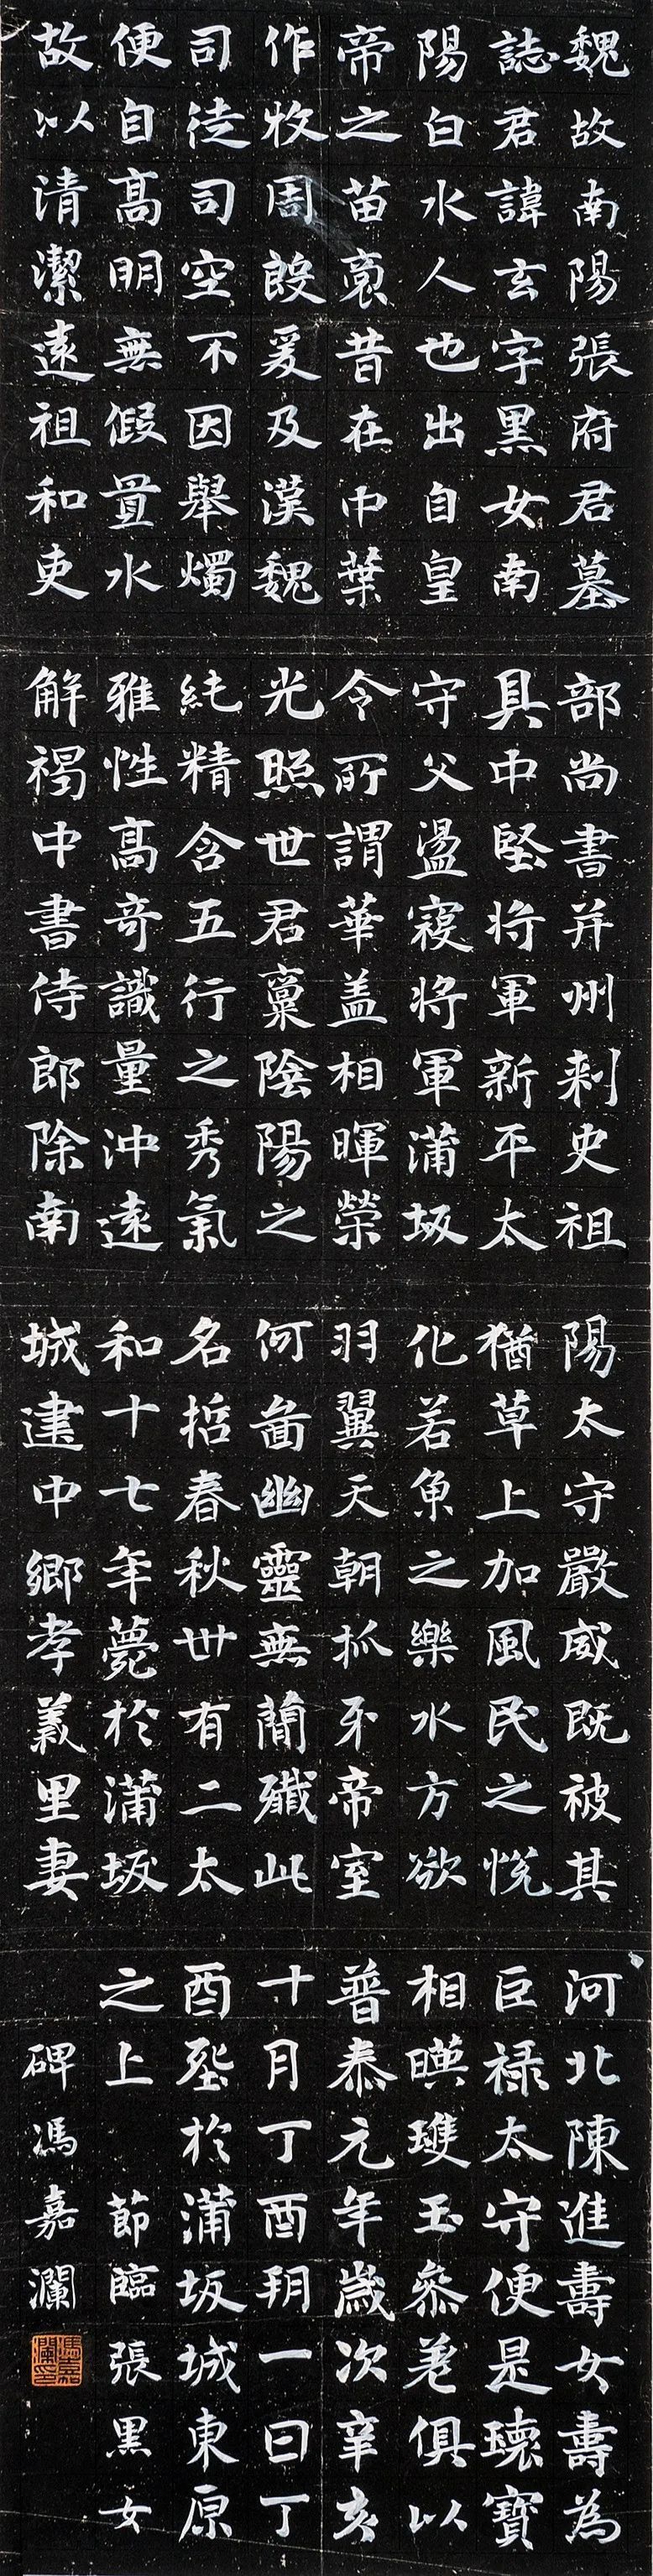 魏故南陽張府君墓
誌君諱玄字黑女南
陽白水人也出自皇
帝之苗裔昔在中葉
作牧周殷爰及漢魏
司徒司空不因舉燭
便自高明無假置水
故以清潔遠祖和吏
部尚書并州刺史祖
具中堅將軍新平太
守父盪寇將軍蒲坂
令所謂華盖相暉榮
光照世君稟陰陽之
純精含五行之秀氣
雅性高奇識量沖遠
解褐中書侍郎除南
陽太守嚴威既被其
猶草上加風民之悅
化若魚之樂水方欲
羽翼天朝抓牙帝室
何啚幽靈無蕳殲此
名哲春秋卅有二太
和十七年薨於蒲坂
城建中鄉孝義里妻
河北陳進壽女壽為
巨祿太守便是瓌寶
相暎瓊玉參差俱以
普泰元年歲次辛亥
十月丁酉朔一日丁
酉塟於蒲坂城東原
之上 節臨張黑女
碑馮嘉瀾
馮嘉瀾印